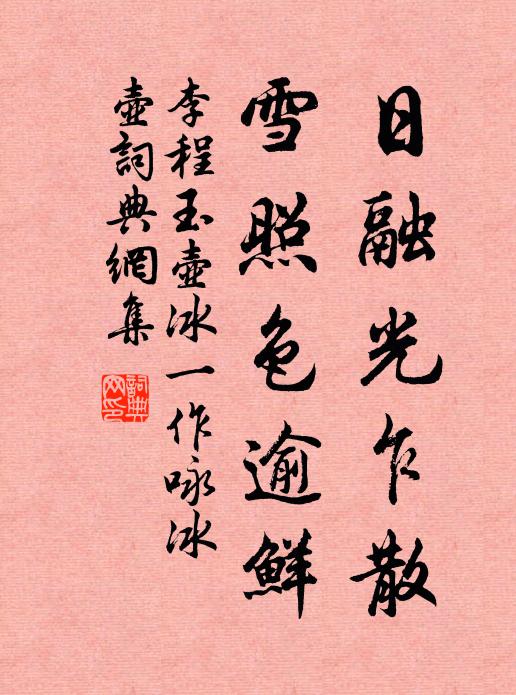 日融光乍散
雪照色逾鮮
李程玉壺冰一作咏冰
壺詞典網集
詞典网印